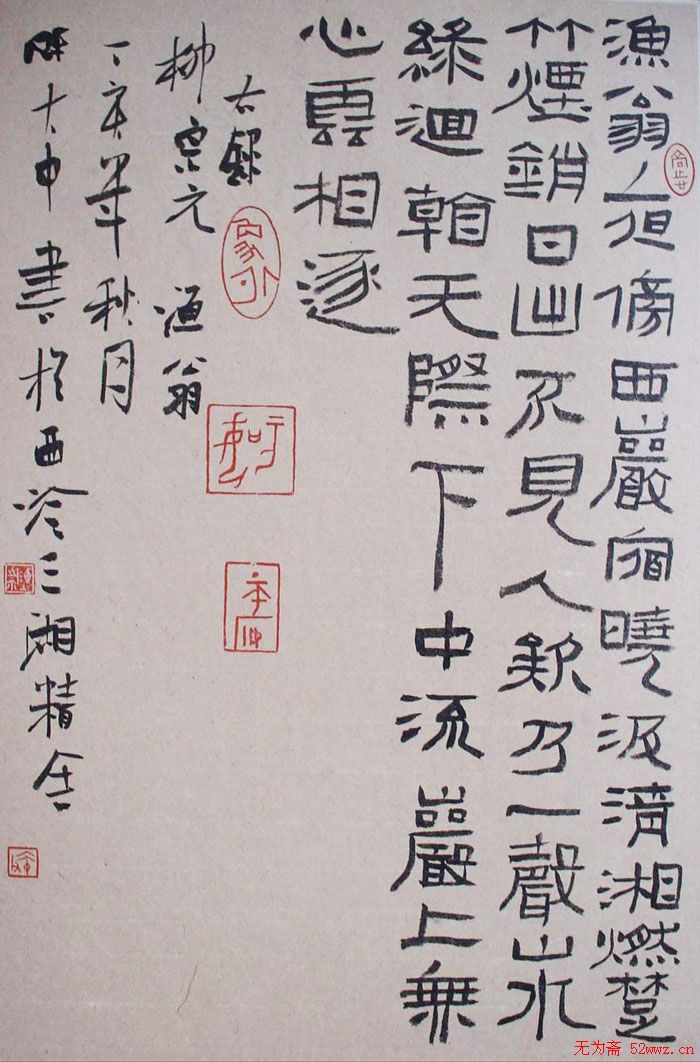 漁翁夜傍西巖宿曉汲清湘燃楚
竹煙銷日出不見人欸乃一聲山水
綠迴看天際下中流巖上無
心雲相逐
右錄
柳宗元 漁翁
丁亥年秋月
陳大中書於西泠三廂精舍
无为斋 52wwz.cn